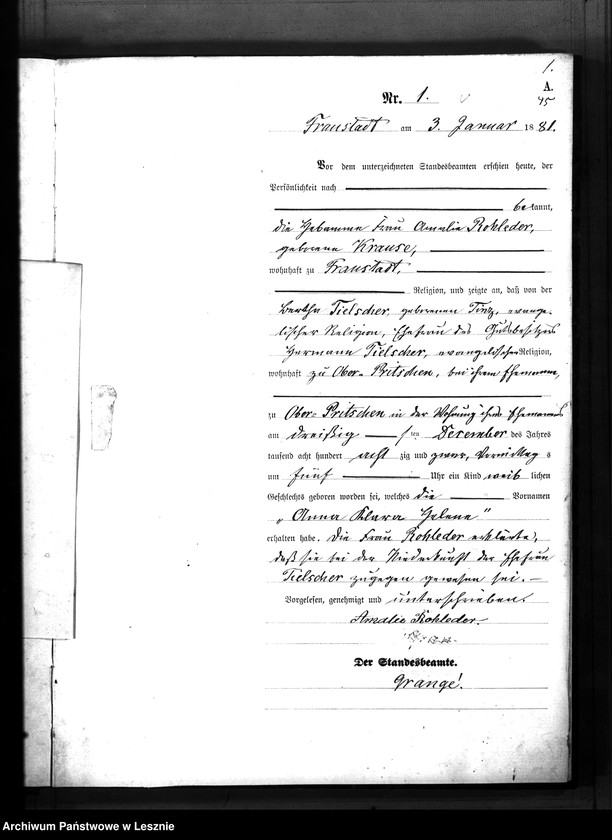 1.
A.
45
Nr. 1.
Fraustadt am 3. Januar 1881.
Vor dem unterzeichneten Standesbeamten erschien heute, der
Persönlichkeit nach
bekannt,
die Hebamme Frau Amalie Rohleder,
geborene Krause,
wohnhaft zu Fraustadt,
Religion, und zeigte an, daß von der
Bertha Tielscher, geborenen Tinz, evange-
lischer Religion, Ehefrau des Gutsbesitzers
Hermann Tielscher, evangelischer Religion,
wohnhaft zu Ober-Pritschen, bei ihrem Ehemanne,
zu Ober-Pritschen in der Wohnung ihres Ehemannes
am dreißigsten December des Jahres
tausend acht hundert achtzig und zwar, Vormittags
um fünf Uhr ein Kind weiblichen
Geschlechts geboren worden sei, welches die Vornamen
„Anna Klara Helene"
erhalten habe. Die Frau Rohleder erklärte,
daß sie bei der Niederkunft der Ehefrau
Tielscher zugegen gewesen sei. —
Vorgelesen, genehmigt und unterschrieben.
Amalie Rohleder.
Der Standesbeamte.
Grangé.
Archiwum Państwowe w Lesznie